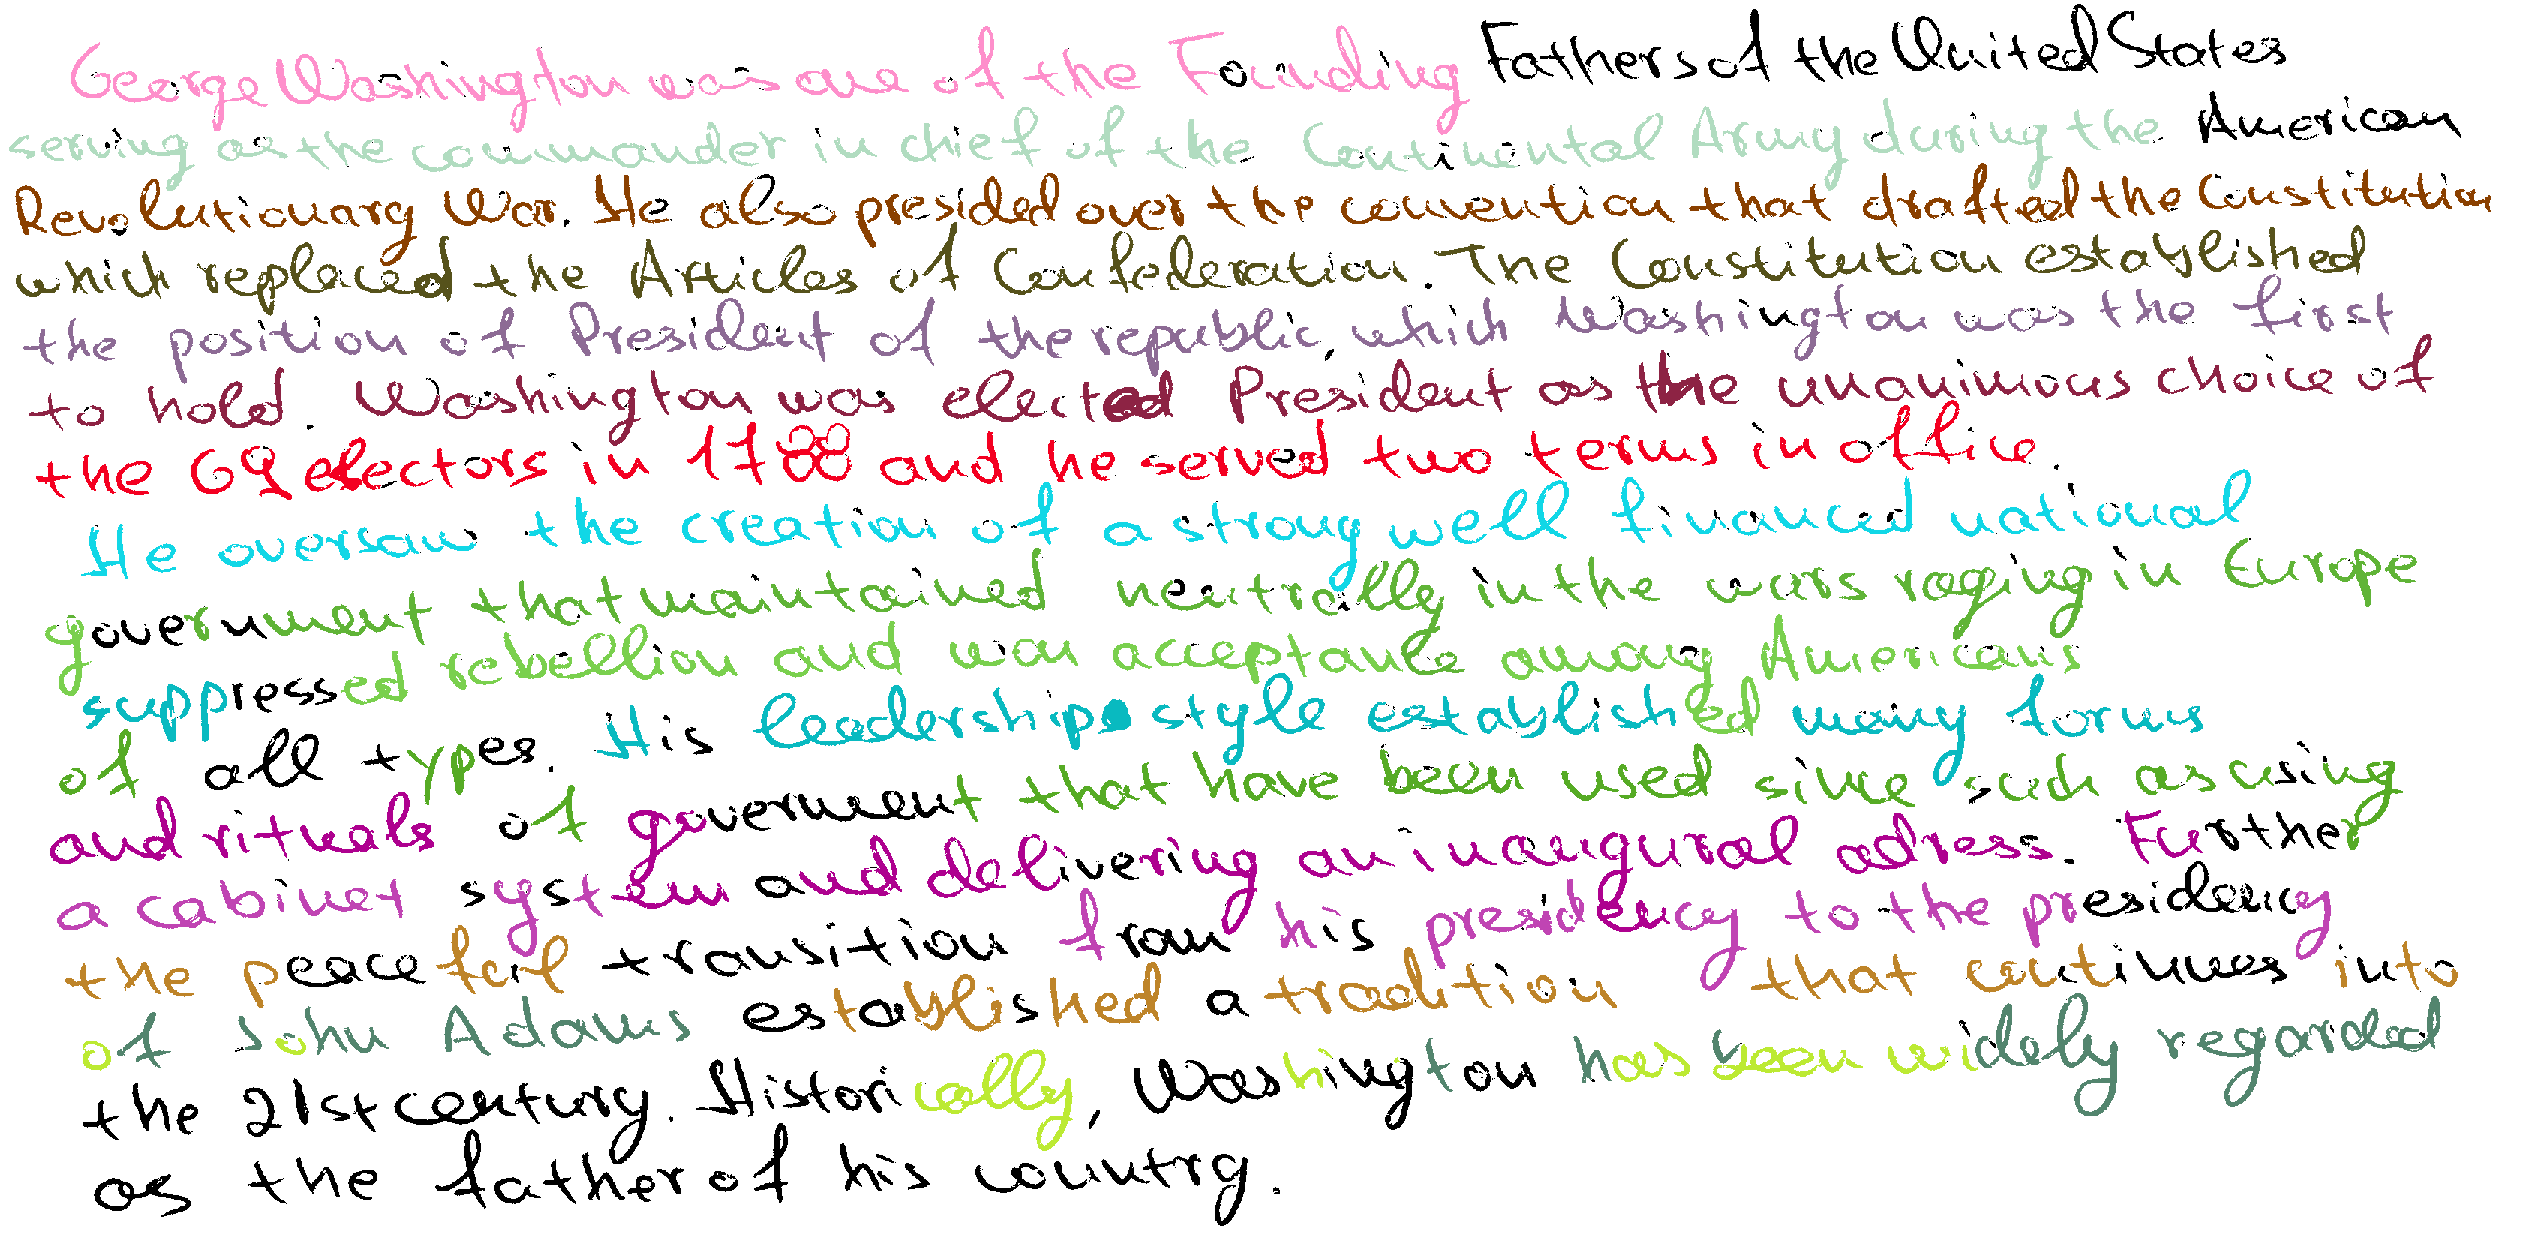 George Washington was one of the Founding Fathers of the United States
serving as the commander in chief of the Continental Army during the American
Revolutionary War. He also presided over the convention that drafted the Constitution
which replaced the Articles of Confederation. The Constitution established
the position of President of the republic, which Washington was the first
to hold. Washington was elected President as the unanimous choice of
the 69 electors in 1788 and he served two terms in office.
He oversaw the creation of a strong well financed national
government that maintained neutrally in the wars raging in Europe
suppressed rebellion and won acceptance among Americans
of all types. His leadership style established many forms
and rituals of government that have been used since such as using
a cabinet system and delivering an inaugural adress. Further
the peaceful transition from his presidency to the presidency
of John Adams established a tradition that continues into
the 21st century. Historically, Washington has been widely regarded
as the father of his country.